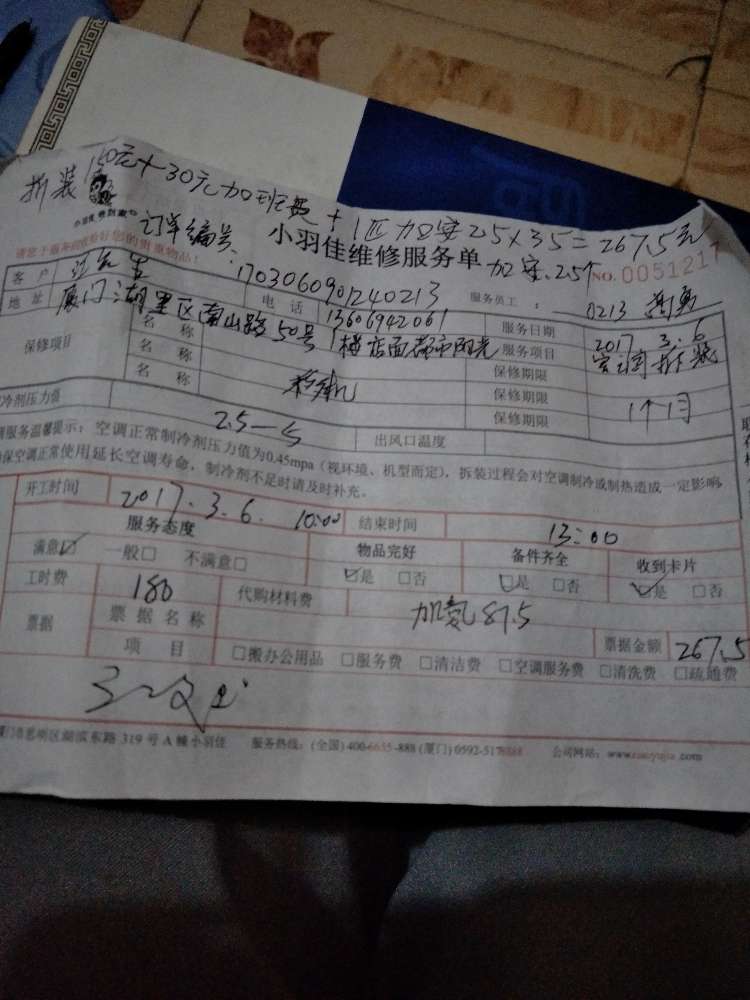 拆装150元+30元加班费+1匹加安25×35=267.5元
订单编号:
小羽佳维修服务单
加安.2.5个
NO.0051217
请您于服务前收存好您的贵重物品!
1703060901240213
服务员工: 0213
客户 江先生 电话 13606942061 服务日期 2017.3.6
地址 厦门湖里区南山路50号1楼店面都市阳光 服务项目 空调拆装
保修项目 名称 保修期限
名称 保修期限
名称 保修期限 1个月
冷剂压力值 2.5—5 出风口温度
服务温馨提示:空调正常制冷剂压力值为0.45mpa(视环境、机型而定),拆装过程会对空调制冷或制热造成一定影响,
保空调正常使用延长空调寿命,制冷剂不足时请及时补充。
开工时间 2017.3.6. 10:00 结束时间 13:00
服务态度 物品完好 备件齐全 收到卡片
满意☑ 一般□ 不满意□ ☑是 □否 ☑是 □否 ☑是 □否
工时费 180 代购材料费 加氟87.5
票据 票据名称 票据金额 267.5
项目 □搬办公用品 □服务费 □清洁费 □空调服务费 □清洗费 □疏通费
厦门市思明区湖滨东路 319 号 A 幢小羽佳 服务热线:(全国)400-6655-888 (厦门)0592-5178888 公司网站:www.xiaoyujia.com